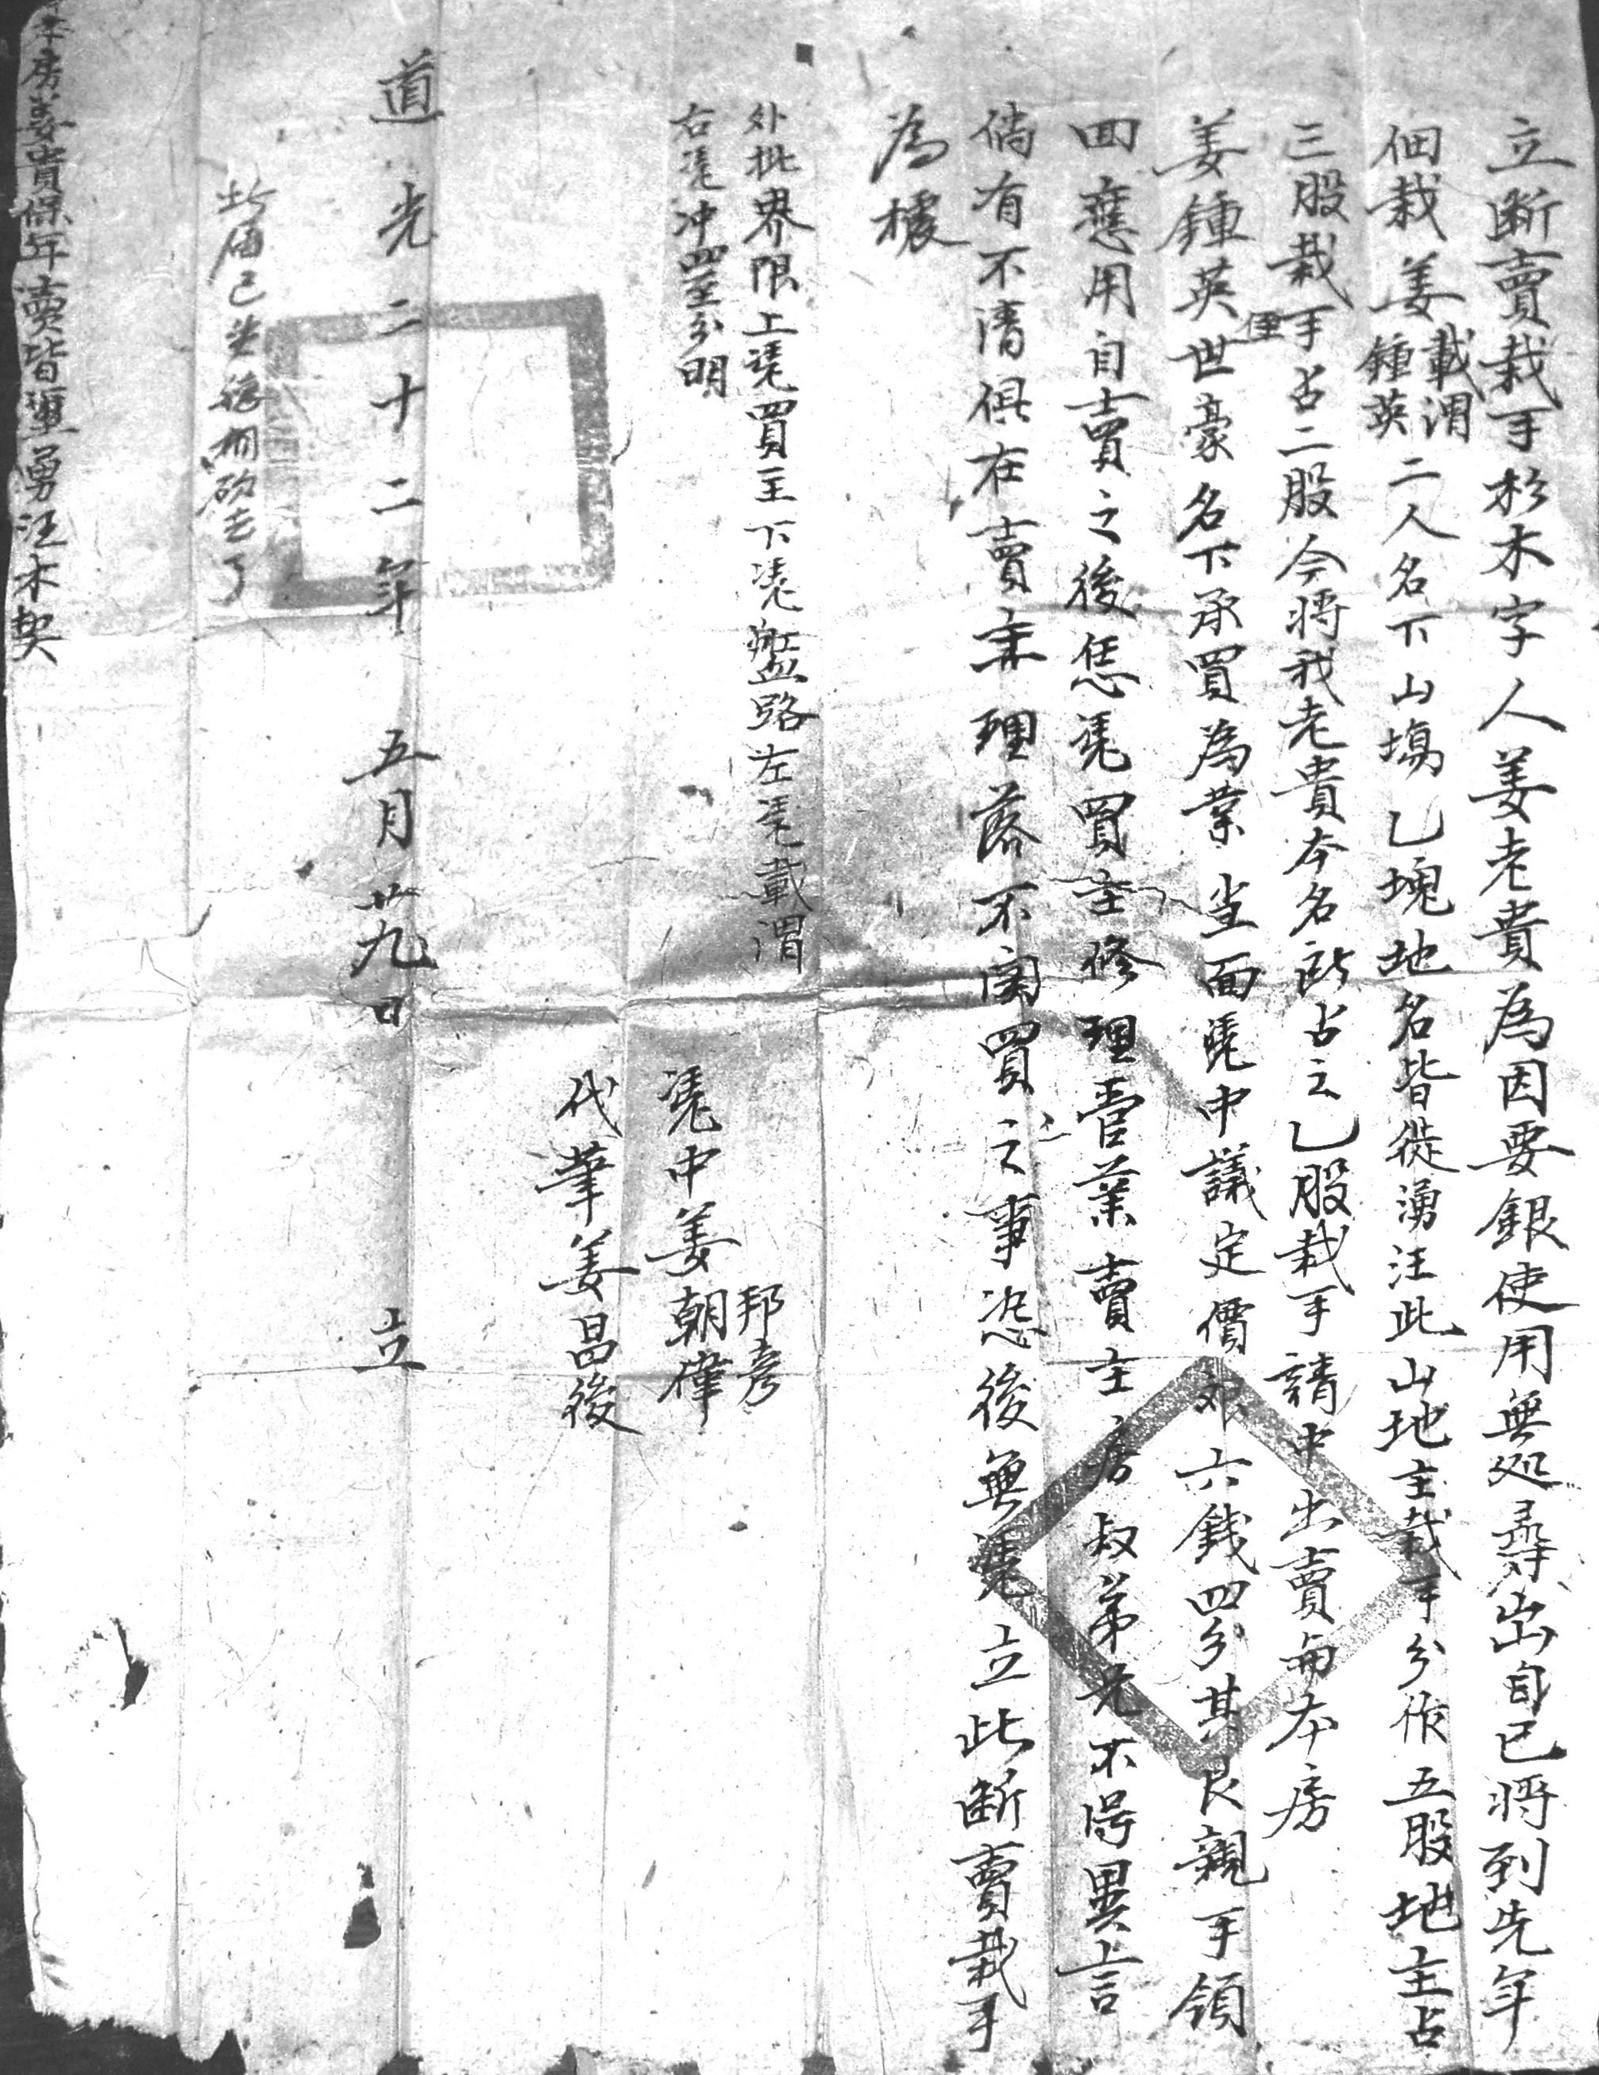 立断賣栽手杉木字人姜老貴為因要銀使用無処尋出自己將到先年
佃栽姜載渭鍾英二人名下山塲乙塊地名皆從湧汪此山地主栽手分作五股地主占
三股栽手占二股今將我老貴本名所占之乙股栽手請中出賣與本房
姜鍾英侄世豪名下承買為業当面凴中議定價艮六銭四分其艮親手領
回應用自賣之後恁凴買主修理管業賣主房叔弟兄不得異言
倘有不清俱在賣主理落不関買主之事恐後無凴立此断賣栽手
為據
外批界限上凴買主下凴盤路左凴載渭
右凴冲四至分明
凴中姜邦彦朝偉
代筆姜昌後
道光二十二年五月廿九日立
此 已 砍去了
本房姜貴保年賣皆 勇汪木契